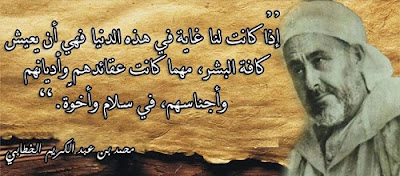 ”
إذا كانت لنا غاية في هذه الدنيا فهي أن يعيش
كافة البشر، مهما كانت عقائدهم وأديانهم
وأجناسهم، في سلام وأخوة.“
محمد بن عبد الكريم الخطابي